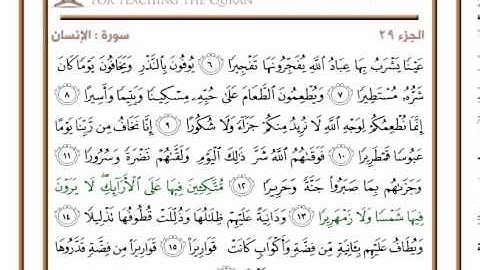 FOR TEACHING THE QURAN
الجزء ٢٩
سورة : الإنسان
عَيْنًا يَشْرَبُ بِهَا عِبَادُ اللَّهِ يُفَجِّرُونَهَا تَفْجِيرًا ٦ يُوفُونَ بِالنَّذْرِ وَيَخَافُونَ يَوْمًا كَانَ
شَرُّهُ مُسْتَطِيرًا ٧ وَيُطْعِمُونَ الطَّعَامَ عَلَىٰ حُبِّهِ مِسْكِينًا وَيَتِيمًا وَأَسِيرًا ٨
إِنَّمَا نُطْعِمُكُمْ لِوَجْهِ اللَّهِ لَا نُرِيدُ مِنكُمْ جَزَاءً وَلَا شُكُورًا ٩ إِنَّا نَخَافُ مِن رَّبِّنَا يَوْمًا
عَبُوسًا قَمْطَرِيرًا ١٠ فَوَقَىٰهُمُ اللَّهُ شَرَّ ذَٰلِكَ الْيَوْمِ وَلَقَّىٰهُمْ نَضْرَةً وَسُرُورًا ١١
وَجَزَىٰهُم بِمَا صَبَرُوا جَنَّةً وَحَرِيرًا ١٢ مُّتَّكِئِينَ فِيهَا عَلَى الْأَرَائِكِ ۖ لَا يَرَوْنَ
فِيهَا شَمْسًا وَلَا زَمْهَرِيرًا ١٣ وَدَانِيَةً عَلَيْهِمْ ظِلَٰلُهَا وَذُلِّلَتْ قُطُوفُهَا تَذْلِيلًا ١٤
وَيُطَافُ عَلَيْهِم بِـَٔانِيَةٍ مِّن فِضَّةٍ وَأَكْوَابٍ كَانَتْ قَوَارِيرَا ١٥ قَوَارِيرَا مِن فِضَّةٍ قَدَّرُوهَا